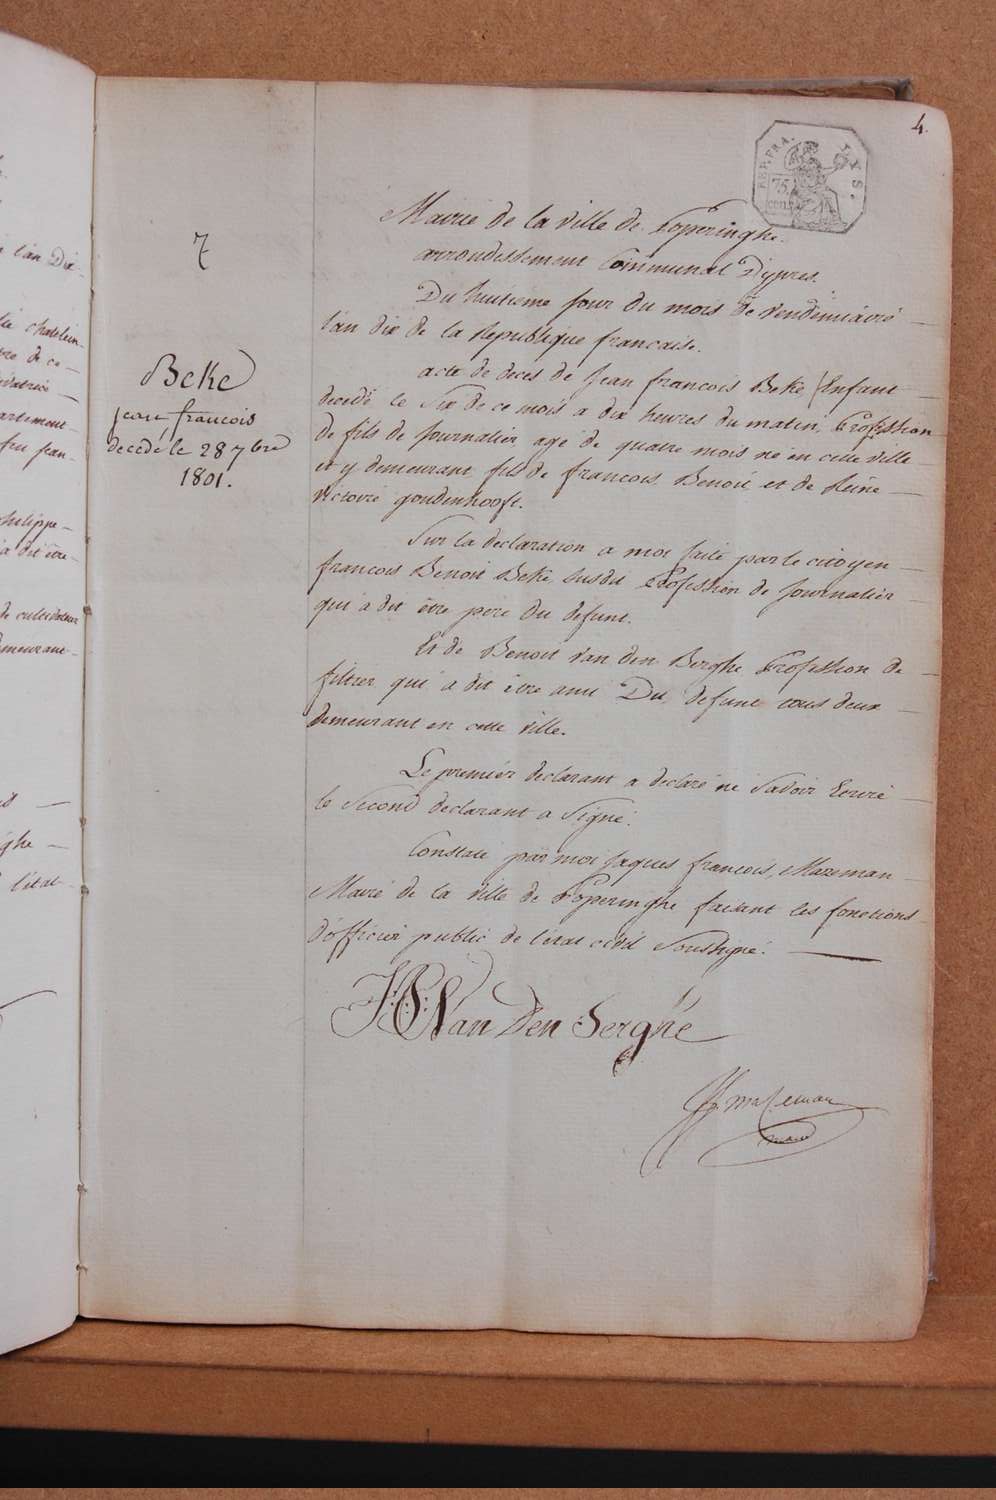 4.
REP. FRA. LYS.
75.
CENT.
7
Beke
jean francois
decedé le 28 7bre
1801.
Mairie de la ville de Poperinghe.
arrondissement Communal D'ypres.
Du huitieme jour du mois de vendemiaire
l'an dix de la Republique francaise.
acte de deces de Jean francois Beke (Enfant
decedé le Six de ce mois a dix heures du matin, Profession
de fils de Journalier agé de quatre mois né en cette ville
et y demeurant, fils de francois Benoit et de Reine
victoire goudenhooft.
Sur la declaration a moi faite par le citoyen
francois Benoit Beke susdit Profession de Journalier
qui a dit être pere du defunt.
Et de Benoit van den Berghe Profession de
filtier qui a dit être ami Du defunt tous deux
demeurant en cette ville.
Le premier declarant a declaré ne Savoir Ecrire
le Second declarant a Signé.
Constaté par moi Jaques francois Mazeman
Maire de la ville de Poperinghe faisant les fonctions
d'officier public de l'etat civil Soussigné.
Van Den Berghe
Mazeman
maire
l'an Dix
de ce
artement
philippe
a dit être
de cultivateur
demeurant
l'etat